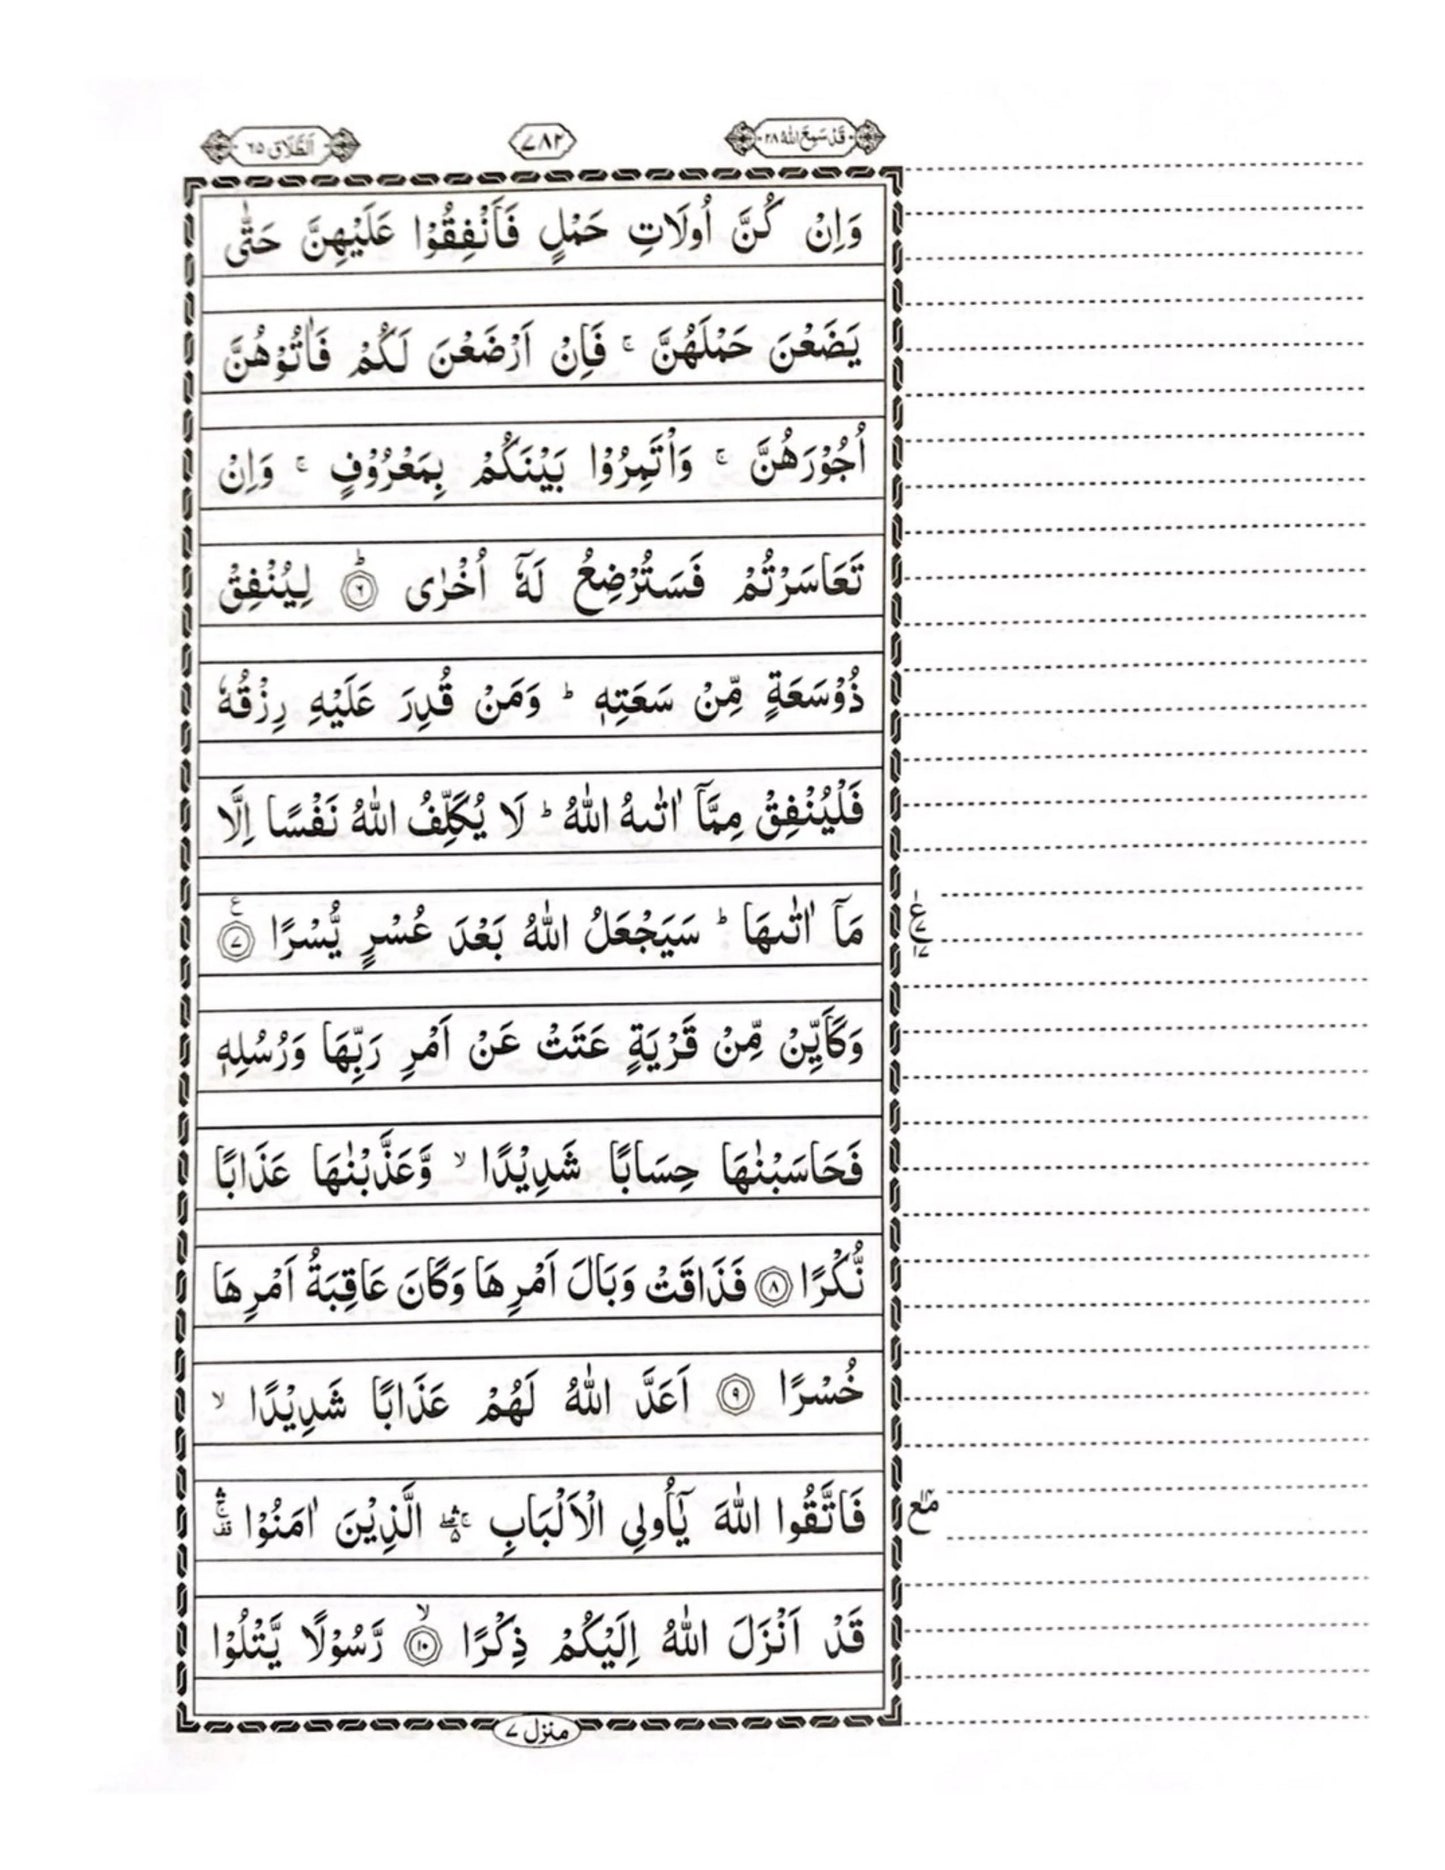 قَدْ سَمِعَ اللّٰهُ ٢٨
٧٨٢
اَلطَّلَاق ٦٥
وَاِنْ كُنَّ اُولَاتِ حَمْلٍ فَاَنْفِقُوْا عَلَيْهِنَّ حَتّٰى
يَضَعْنَ حَمْلَهُنَّ ۚ فَاِنْ اَرْضَعْنَ لَكُمْ فَاٰتُوْهُنَّ
اُجُوْرَهُنَّ ۚ وَاْتَمِرُوْا بَيْنَكُمْ بِمَعْرُوْفٍ ۚ وَاِنْ
تَعَاسَرْتُمْ فَسَتُرْضِعُ لَهٗۤ اُخْرٰى ؕ‏﴿۶﴾ لِيُنْفِقْ
ذُوْ سَعَةٍ مِّنْ سَعَتِهٖ ؕ وَمَنْ قُدِرَ عَلَيْهِ رِزْقُهٗ
فَلْيُنْفِقْ مِمَّاۤ اٰتٰىهُ اللّٰهُ ؕ لَا يُكَلِّفُ اللّٰهُ نَفْسًا اِلَّا
مَاۤ اٰتٰىهَا ؕ سَيَجْعَلُ اللّٰهُ بَعْدَ عُسْرٍ يُّسْرًا ﴿۷﴾ ع
ع ٧ ١٧
وَكَاَيِّنْ مِّنْ قَرْيَةٍ عَتَتْ عَنْ اَمْرِ رَبِّهَا وَرُسُلِهٖ
فَحَاسَبْنٰهَا حِسَابًا شَدِيْدًا ۙ وَّعَذَّبْنٰهَا عَذَابًا
نُّكْرًا ﴿۸﴾ فَذَاقَتْ وَبَالَ اَمْرِهَا وَكَانَ عَاقِبَةُ اَمْرِهَا
خُسْرًا ﴿۹﴾ اَعَدَّ اللّٰهُ لَهُمْ عَذَابًا شَدِيْدًا ۙ
فَاتَّقُوا اللّٰهَ يٰۤاُولِى الْاَلْبَابِ ۛۚ الَّذِيْنَ اٰمَنُوْا ۛۚ
قَدْ اَنْزَلَ اللّٰهُ اِلَيْكُمْ ذِكْرًا ۙ﴿۱۰﴾ رَّسُوْلًا يَّتْلُوْا
منزل ٧